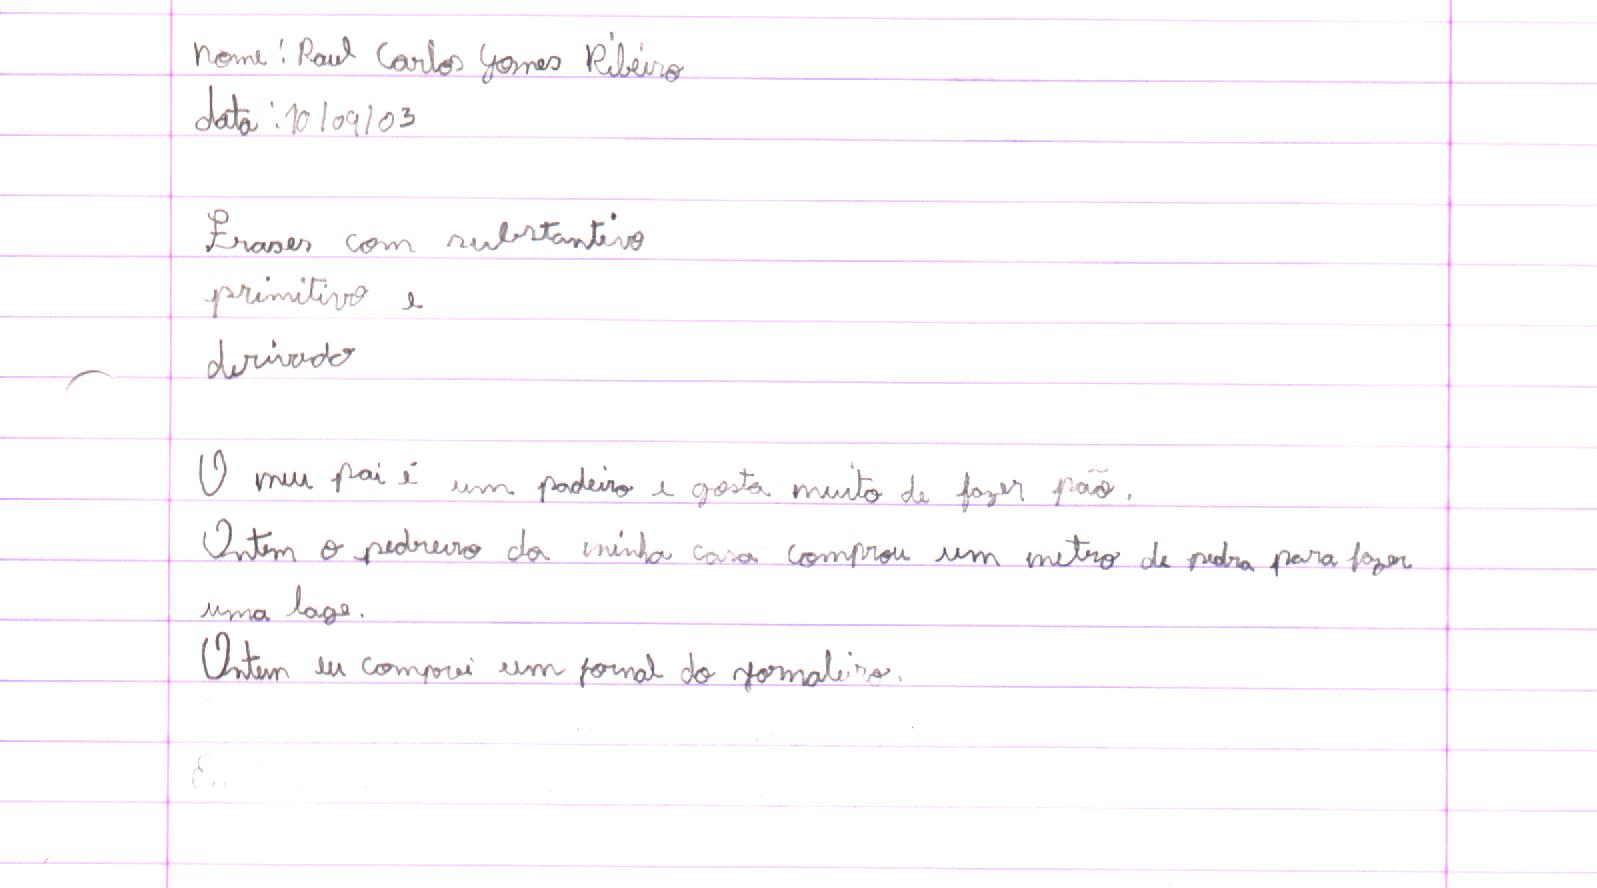 Nome: Raul Carlos Gomes Ribeiro
data: 10/09/03
Frases com substantivo
primitivo e
derivado
O meu pai é um padeiro e gosta muito de fazer pão.
Ontem o pedreiro da minha casa comprou um metro de pedra para fazer
uma lage.
Ontem eu comprei um jornal do jornaleiro.